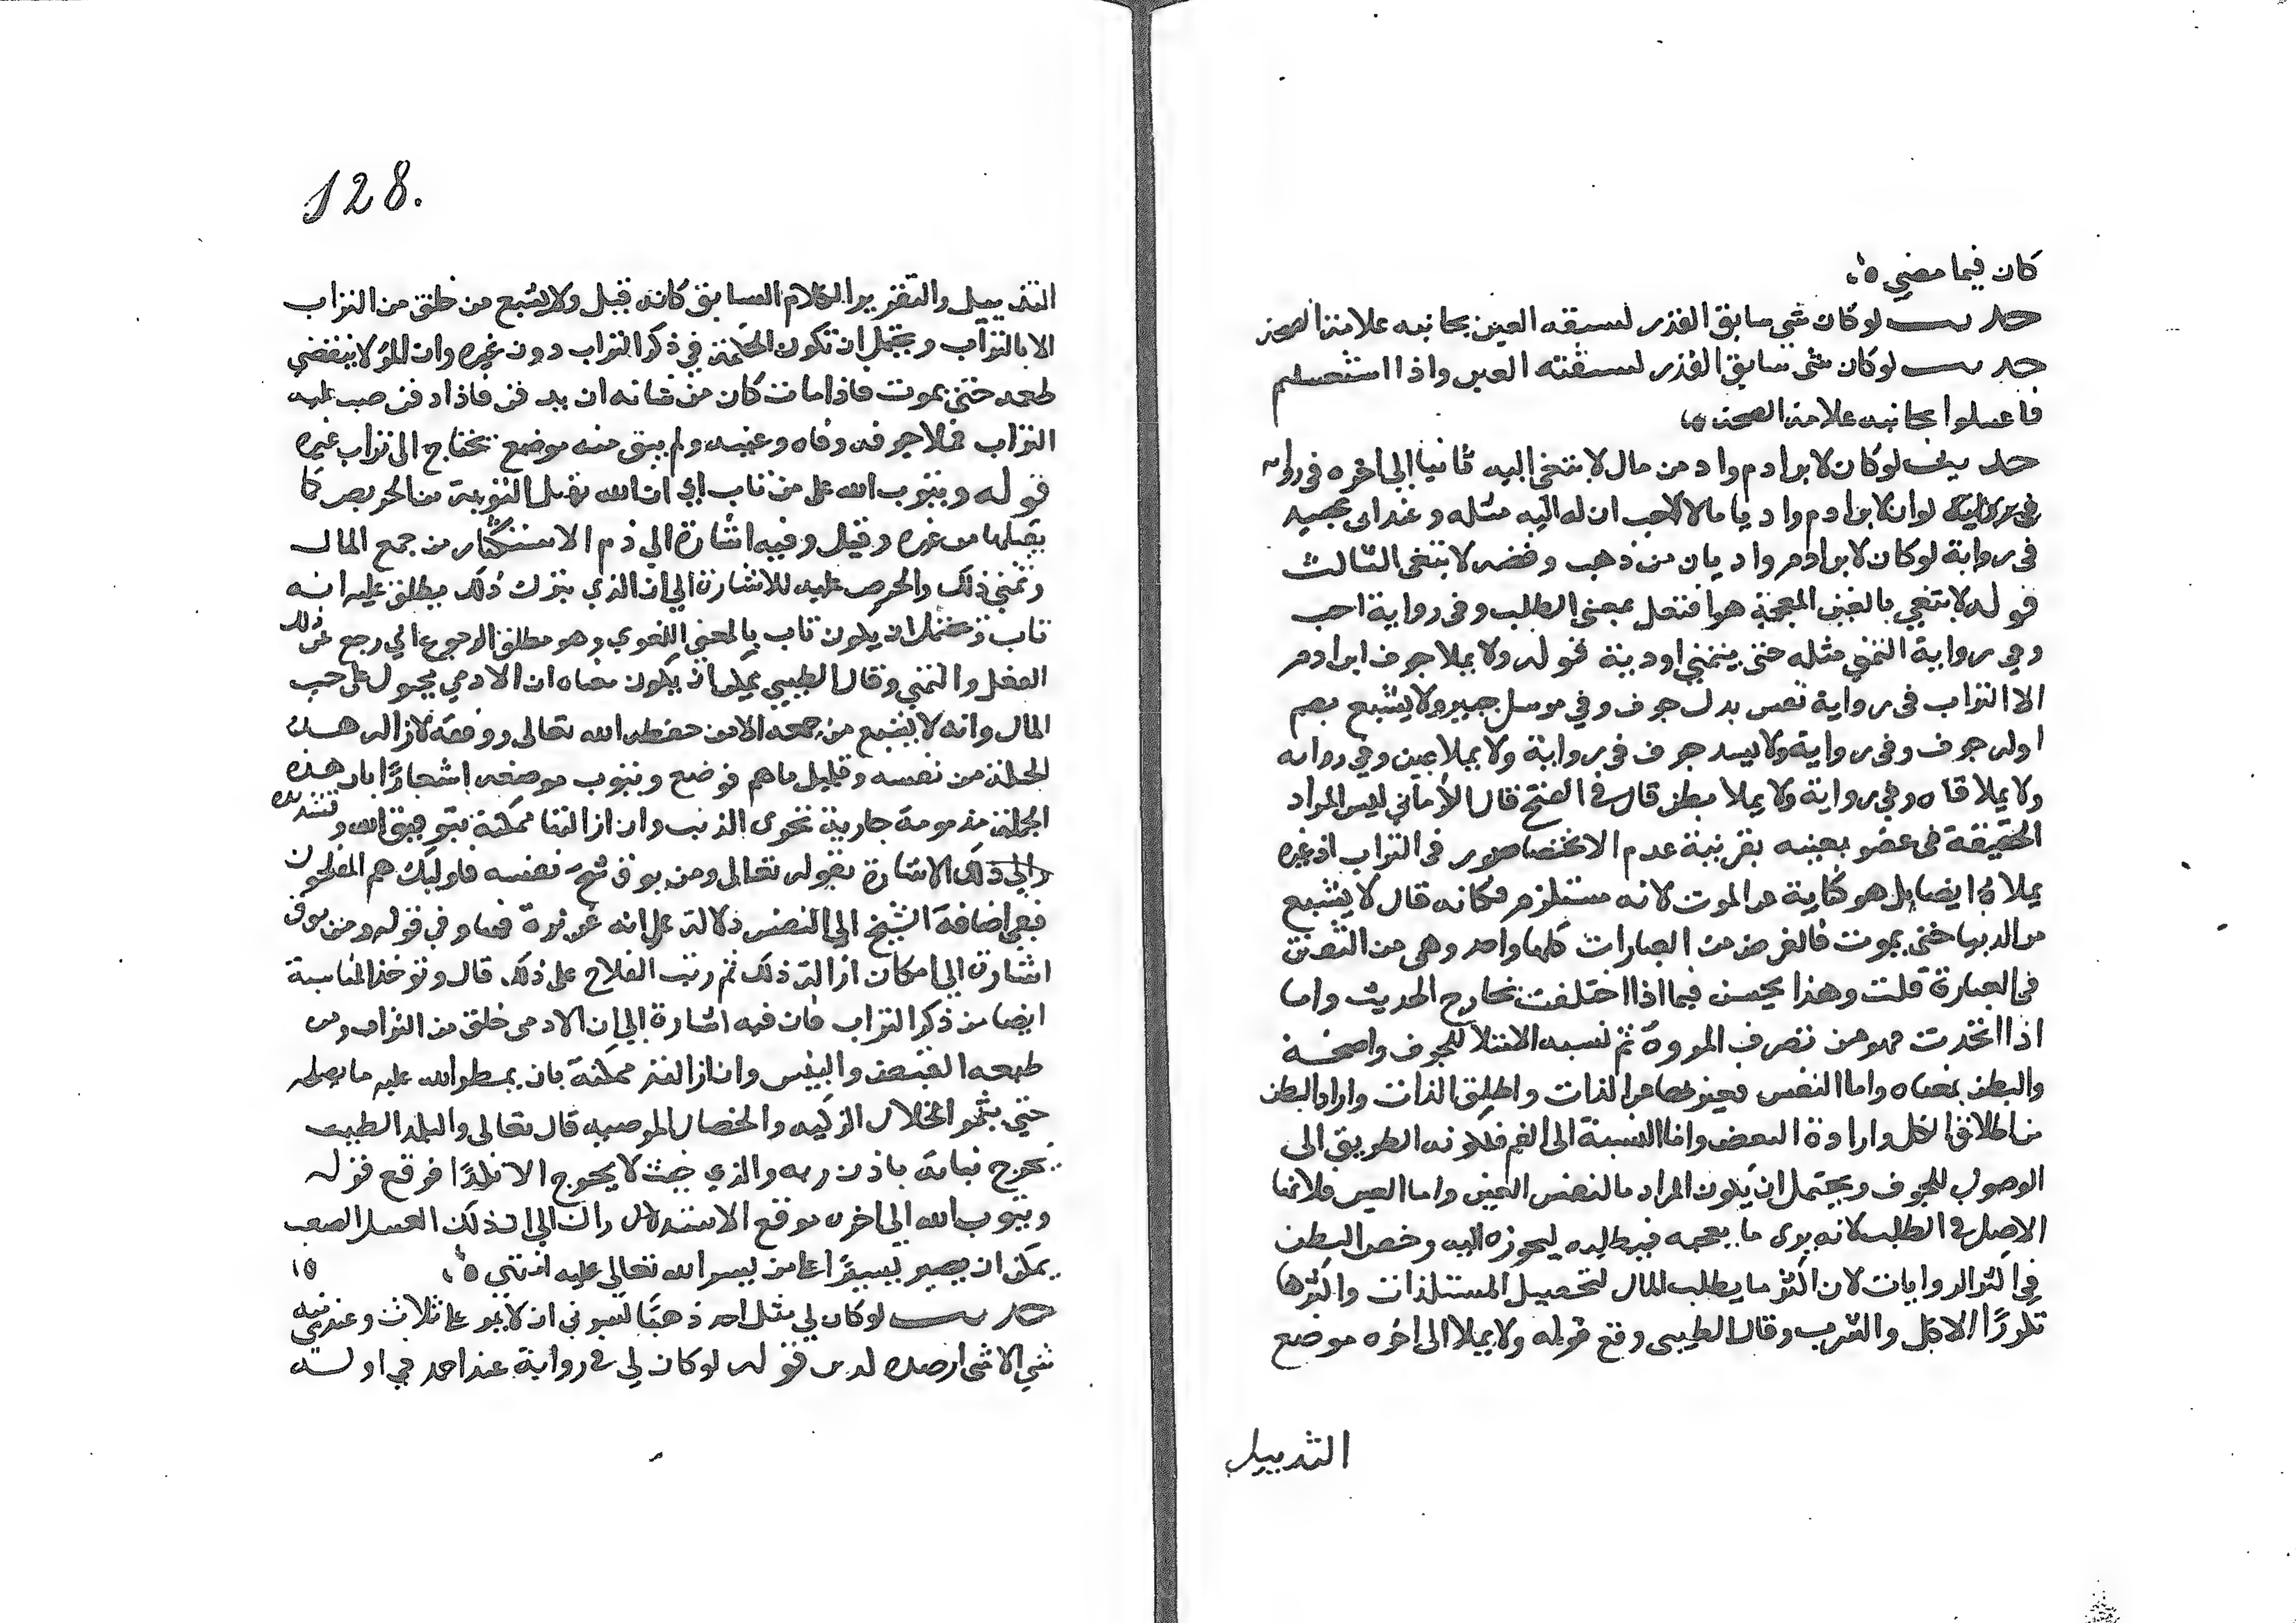 كان فيما مضي ه
حديث لوكان شي سابق القدر لسبقه العين بجانبه علامة الصحة
حديث لوكان شي سابق القدر لسبقته العين واذا استغسلتم
فاغسلوا بجانبه علامة الصحة ه
حديث لوكان لابن ادم واد من مال لابتغي اليه ثانيا الي اخره في رواية
لوان لابن ادم واديا مالا لاحب ان له اليه مثله وعند ابي عبيد
في رواية لوكان لابن ادم واديان من ذهب وفضه لابتغي الثالث
قوله لابتغي بالغين المعجمة هو افتعل بمعني الطلب وفي رواية احب
وفي رواية التمني مثله حتي يتمني اودية قوله ولا يملا جوف ابن ادم
الا التراب في رواية نفس بدل جوف وفي مرسل جبير ولا يشبع بضم
اوله جوف وفي رواية ولا يسد جوف في رواية ولا يملا عين وفي رواية
ولا يملا فاه وفي رواية ولا يملا بطن قال في الفتح قال الكرماني ليس المراد
الحقيقة في عضو بعينه بقرينة عدم الانحصار في التراب اذ غيره
يملاه ايضا بل هو كناية عن الموت لانه مستلزم فكانه قال لا يشبع
من الدنيا حتي يموت فالغرض من العبارات كلها واحد وهي من التفنن
في العبارة قلت وهذا يحسن فيما اذا اختلفت مخارج الحديث واما
اذا اتحدت فهو من تصرف الرواة ثم نسبه الامتلا للجوف واضحة
والبطن بمعناه واما النفس فعبر بها عن الذات واطلق الذات واراد البطن
من اطلاق الكل وارادة البعض واما النسبة الي الفم فلكونه الطريق الي
الوصول للجوف ويحتمل ان يكون المراد بالنفس العين واما العين فلانها
الاصل في الطلب لانه يري ما يعجبه فيطلبه ليحوزه اليه وخص البطن
في اكثر الروايات لان اكثر ما يطلب المال لتحصيل المستلذات واكثرها
تكررًا الاكل والشرب وقال الطيبي وقع قوله ولا يملا الي اخره موضع
التذييل
128.
التذييل والتقرير للكلام السابق كانه قيل ولا يشبع من خلق من التراب
الا بالتراب ويحتمل ان تكون الحكمة في ذكر التراب دون غيره وان المرء لا ينقضي
طمعه حتي يموت فاذا مات كان من شانه ان يدفن فاذا دفن صب عليه
التراب فملا جوفه وفاه وعينيه ولم يبق منه موضع يحتاج الي تراب غيره
قوله ويتوب الله علي من تاب اي ان الله يقبل التوبة من الحريص كما
يقبلها من غيره وقيل وفيه اشارة الي ذم الاستكثار من جمع المال
وتمني ذلك والحرص عليه للاشارة الي ان الذي يترك ذلك يطلق عليه انه
تاب ويحتمل ان يكون تاب بالمعني اللغوي وهو مطلق الرجوع اي رجع عن ذلك
الفعل والتمني وقال الطيبي يمكن ان يكون معناه ان الادمي مجبول علي حب
المال وانه لا يشبع من جمعه الا من حفظه الله تعالي ووفقه لازالة هذه
الجبلة من نفسه وقليل ما هم فوضع ويتوب موضعه اشعارًا بان هذه
الجبلة مذمومة جارية مجري الذنب وان ازالتها ممكنة بتوفيق الله وتسديده
والي ذلك الاشارة بقوله تعالي ومن يوق شح نفسه فاوليك هم المفلحون
ففي اضافة الشح الي النفس دلالة علي انه غريزة فيها وفي قوله ومن يوق
اشارة الي امكان ازالة ذلك ثم رتب الفلاح علي ذلك قال وتوخذ المناسبة
ايضا من ذكر التراب فان فيه اشارة الي ان الادمي خلق من التراب ومن
طبعه القبض واليبس وان ازالته ممكنة بان يمطر الله عليه ما يصلحه
حتي يثمر الخلال الزكية والخصال المرضية قال تعالي والبلد الطيب
يخرج نباته باذن ربه والذي خبث لا يخرج الا نكدًا فوقع قوله
ويتوب الله الي اخره موقع الاستدراك اي ان ذلك العسر الصعب
يمكن ان يصير يسيرًا علي من يسر الله تعالي عليه انتهي ه
حديث لوكان لي مثل احد ذهبًا لسرني ان لا يمر علي ثلاث وعندي منه
شي الا شي ارصده لدين قوله لوكان لي في رواية عند احمد في اوله